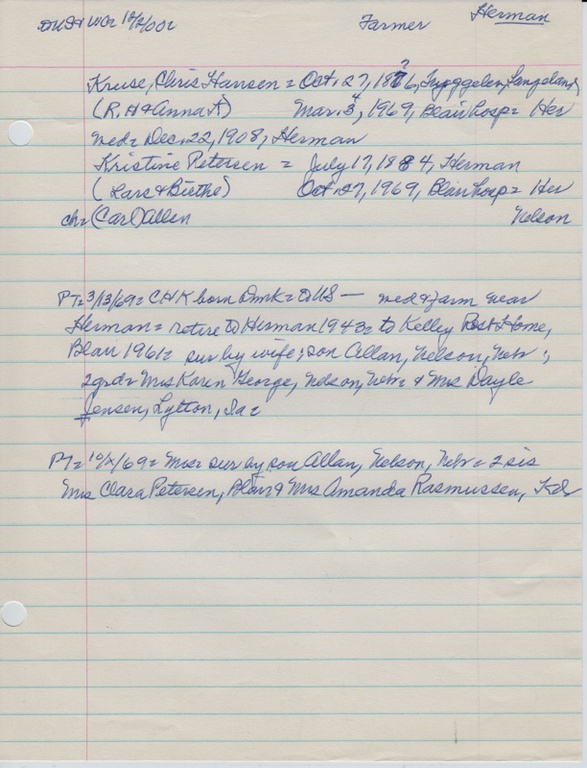 Farmer Herman
Kruse, Chris Hansen = Oct. 27, 1876, Langeland,
(R.H & Anna A) Mar. 3, 1969, Blair hosp = Her
wed = Dec. 22, 1908, Herman
Kristine Petersen = July 17, 1884, Herman
(Lars & Birthe) Oct. 27, 1969, Blair hosp = Her
ch = (Carl) Allen Nelson
PT = 3/13/69 = CHK born Dmk = to US — wed & farm near
Herman = retire to Herman 1943 = to Kelley Rest Home,
Blair 1961 = sur by wife; son Allan, Nelson, Nebr;
2grd = Mrs Karen George, Nelson, Nebr = & Mrs Dayle
Jensen, Lytton, Ia =
PT = 10/x/69 = Mrs = sur by son Allan, Nelson, Nebr = 2 sis
Mrs Clara Petersen, Blair & Mrs Amanda Rasmussen,